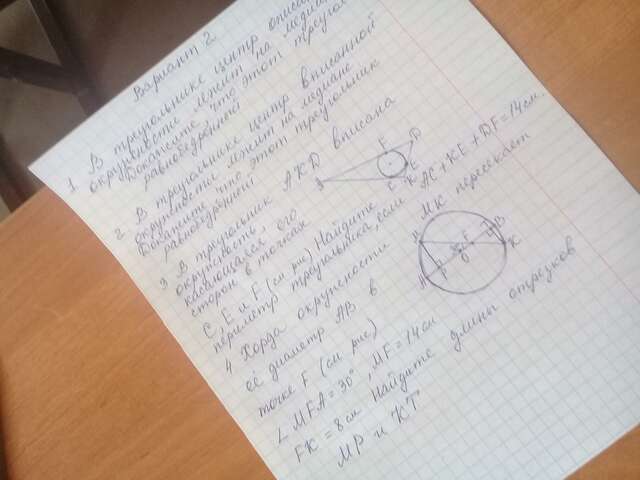 Вариант 2.
1 В треугольнике центр вписанной
окружности лежит на медиане
Докажите что этот треугольник
равнобедренный
2 В треугольнике центр вписанной
окружности лежит на медиане
Докажите что этот треугольник
равнобедренный
3 В треугольник AKD вписана
окружность,
касающаяся его
сторон в точках
C, E и F (см рис) Найдите
периметр треугольника, если AC+KE+DF=14см.
4 Хорда окружности MK пересекает
её диаметр AB в
точке F (см рис)
∠MFA=30°, MF=14см
FK=8см Найдите длины отрезков
MP и KT
F
D
E
C
K
M
B
K
F
A
P